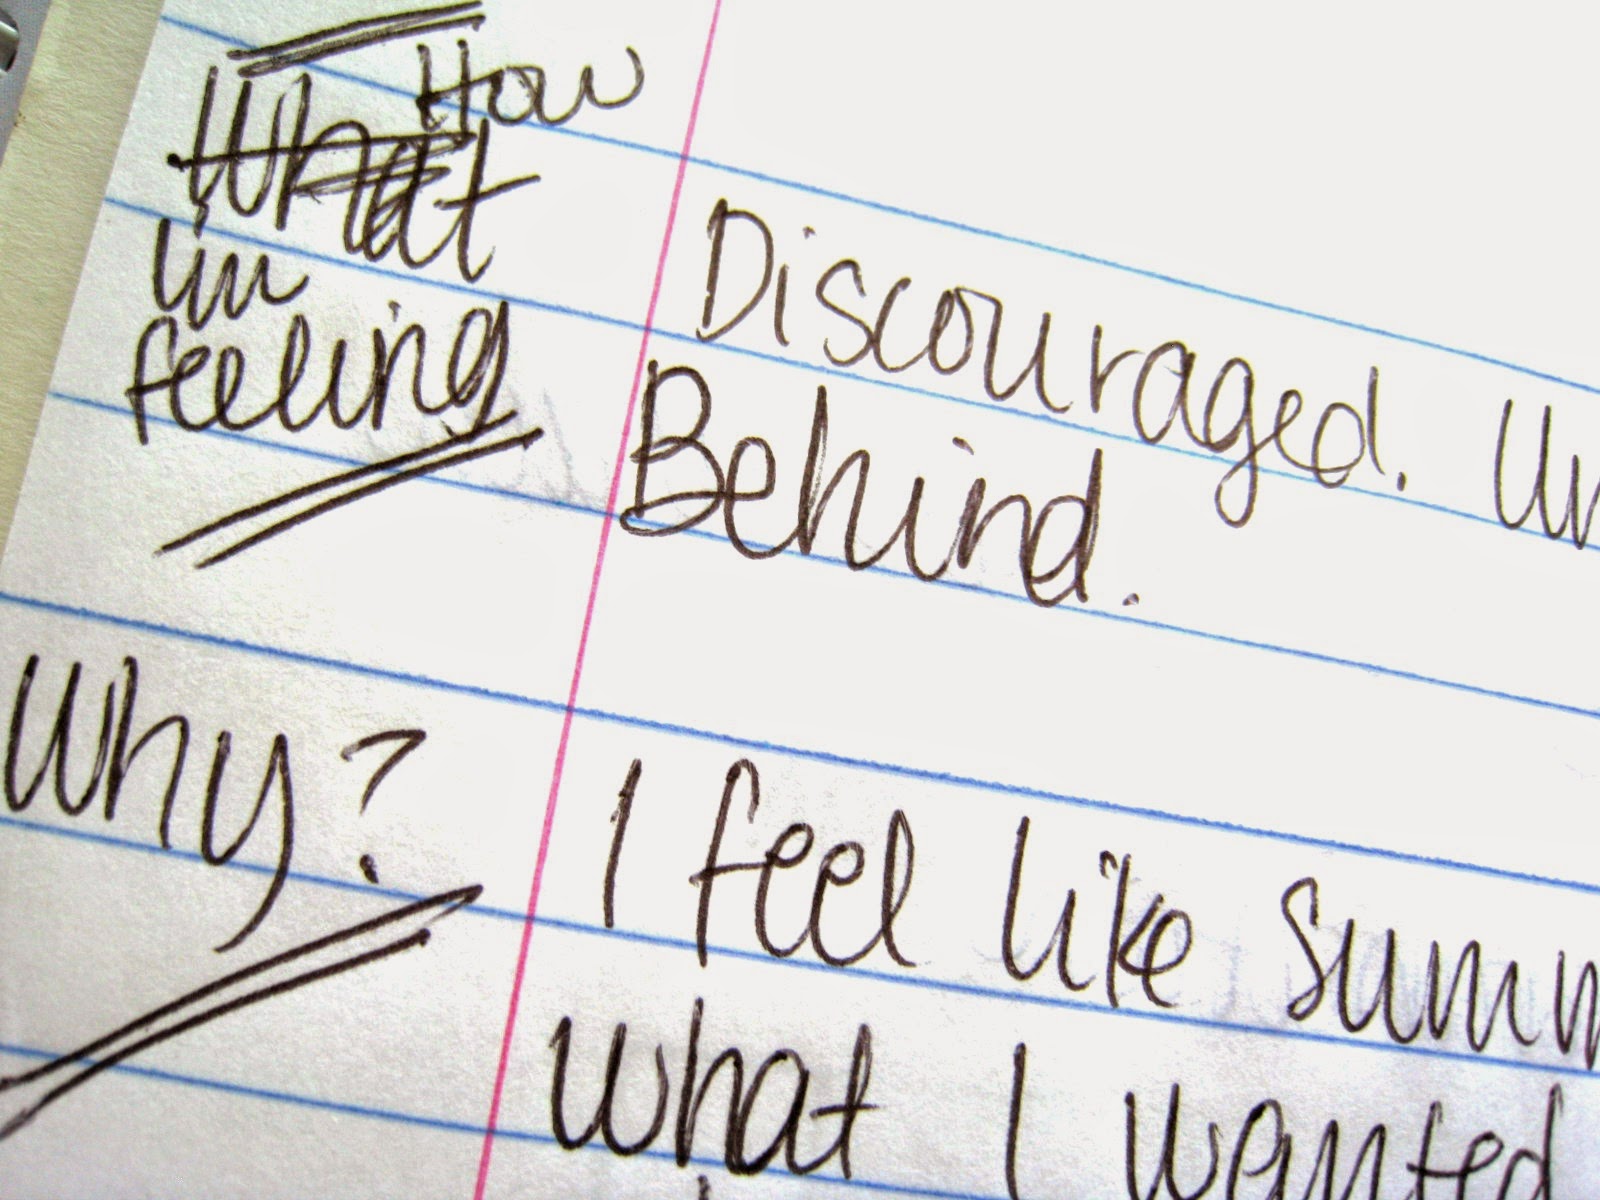 How
What
im
feeling
Discouraged. Un
Behind.
Why?
I feel like summ
what I wanted